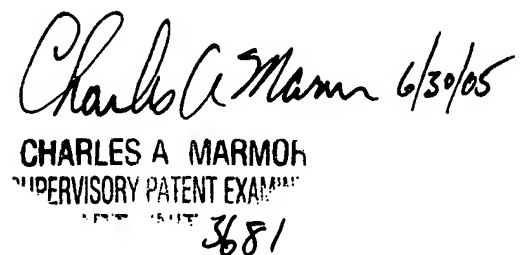 Charles A Marmor 6/30/05
CHARLES A MARMOR
SUPERVISORY PATENT EXAMINER
3681